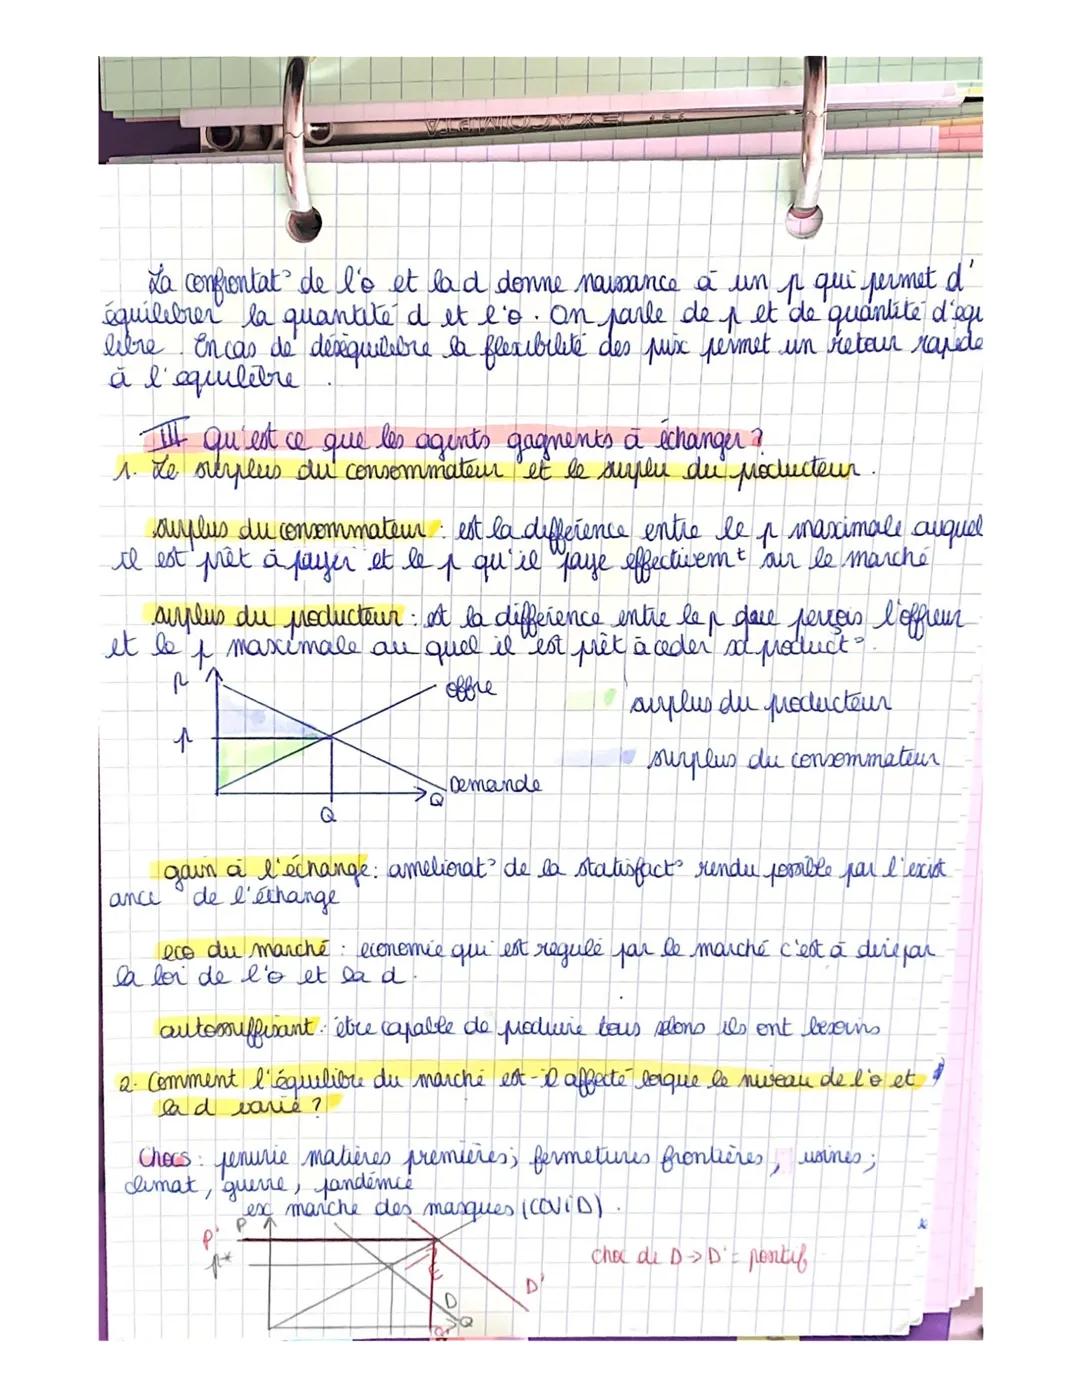 EXACOMPTA
La confrontat° de l'o et la d donne naissance à un p qui permet d'
équilibrer la quantité d et l'o. On parle de p et de quantité d'equi
libre. En cas de déséquilibre la flexibilité des prix permet un retour rapide
à l'equilibre.
III Qu'est ce que les agents gagnents à échanger ?
1. Le surplus du consommateur et le surplu du producteur.
surplus du consommateur : est la différence entre le p maximale auquel
il est prêt à payer et le p qu'il paye effectivemt sur le marché
surplus du producteur : est la différence entre le p que perçois l'offreur
et le p maximale au quel il est prêt à ceder sa product°.
p
offre
surplus du producteur
p
surplus du consommateur
Demande
Q
Q
gain à l'échange : ameliorat° de la statisfact° rendu possible par l'exist
ance de l'échange
eco du marché : economie qui est regulé par le marché c'est à dire par
la loi de l'o et la d.
autosuffisant : être capable de produire tous selons ils ont besoins
2. Comment l'équilibre du marché est-il affecté lorque le niveau de l'o et
la d varie ?
Chocs : penurie matières premières; fermetures frontières, usines;
climat, guerre, pandémie
ex marche des masques (COViD).
P' P
p*
choc de D → D' = positif
D'
D
Q
Q'